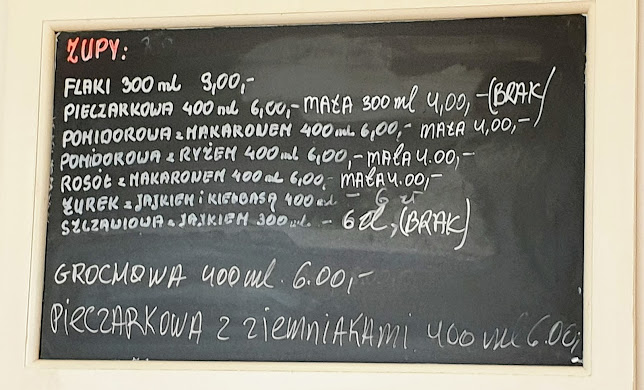 ZUPY:
FLAKI 300 ml 9,00,-
PIECZARKOWA 400 ml 6,00,- MAŁA 300 ml 4,00,-(BRAK)
POMIDOROWA z MAKARONEM 400 ml 6,00,- MAŁA 4,00,-
POMIDOROWA z RYŻEM 400 ml 6,00,- MAŁA 4.00,-
ROSÓŁ z MAKARONEM 400 ml 6,00,- MAŁA 4.00,-
ŻUREK z JAJKIEM i KIEŁBASĄ 400 ml - 6 zł
SZCZAWIOWA z JAJKIEM 300 ml - 6 zł, (BRAK)
GROCHOWA 400 ml. 6.00,-
PIECZARKOWA z ziemniakami 400 ml 6.00,-